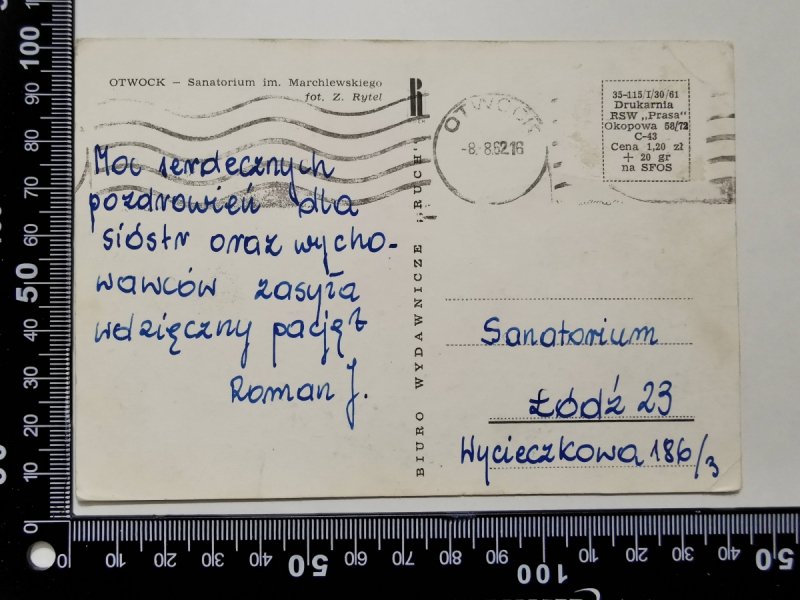 OTWOCK — Sanatorium im. Marchlewskiego
fot. Z. Rytel
Moc serdecznych
pozdrowień dla
sióstr oraz wycho-
wawców zasyła
wdzięczny pacjęt
Roman J.
BIURO WYDAWNICZE „RUCH"
OTWOCK
-8.-8.62.16
35-115/I/30/61
Drukarnia
RSW „Prasa"
Okopowa 58/72
C-43
Cena 1,20 zł
+ 20 gr
na SFOS
Sanatorium
Łódź 23
Wycieczkowa 186/3
0 10 20 30 40 50 60 70 80 90 100
0 10 20 30 40 50 60 70 80 90 100 10 20 30 40 50